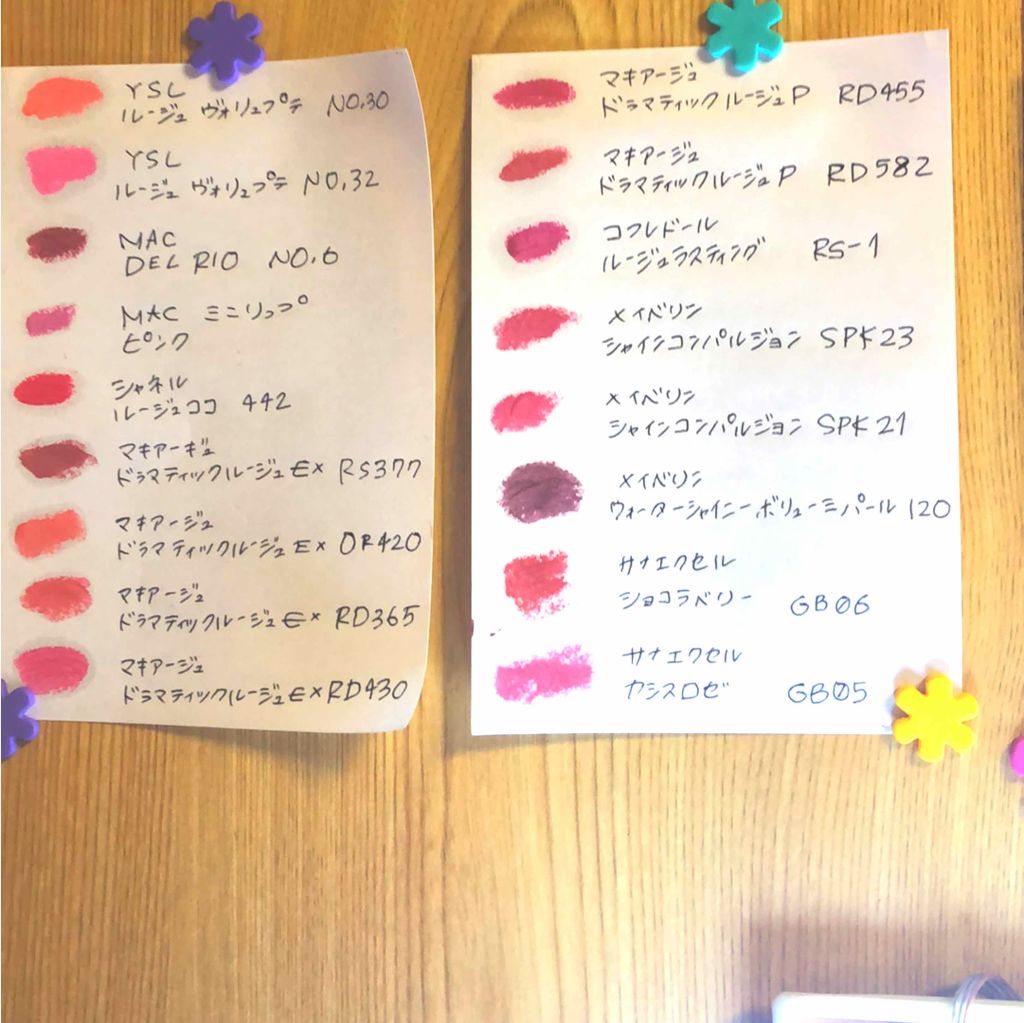 YSL
ルージュ ヴォリュプテ NO.30
YSL
ルージュ ヴォリュプテ NO.32
MAC
DEL RIO NO.6
MAC ミニリップ
ピンク
シャネル
ルージュココ 442
マキアーギュ
ドラマティックルージュEX RS377
マキアージュ
ドラマティックルージュEX OR420
マキアージュ
ドラマティックルージュEX RD365
マキアージュ
ドラマティックルージュEX RD430
マキアージュ
ドラマティックルージュP RD455
マキアージュ
ドラマティックルージュP RD582
コフレドール
ルージュラスティング RS-1
メイベリン
シャインコンパルジョン SPK23
メイベリン
シャインコンパルジョン SPK21
メイベリン
ウォーターシャイニーボリューミパール 120
サナエクセル
ショコラベリー GB06
サナエクセル
カシスロゼ GB05